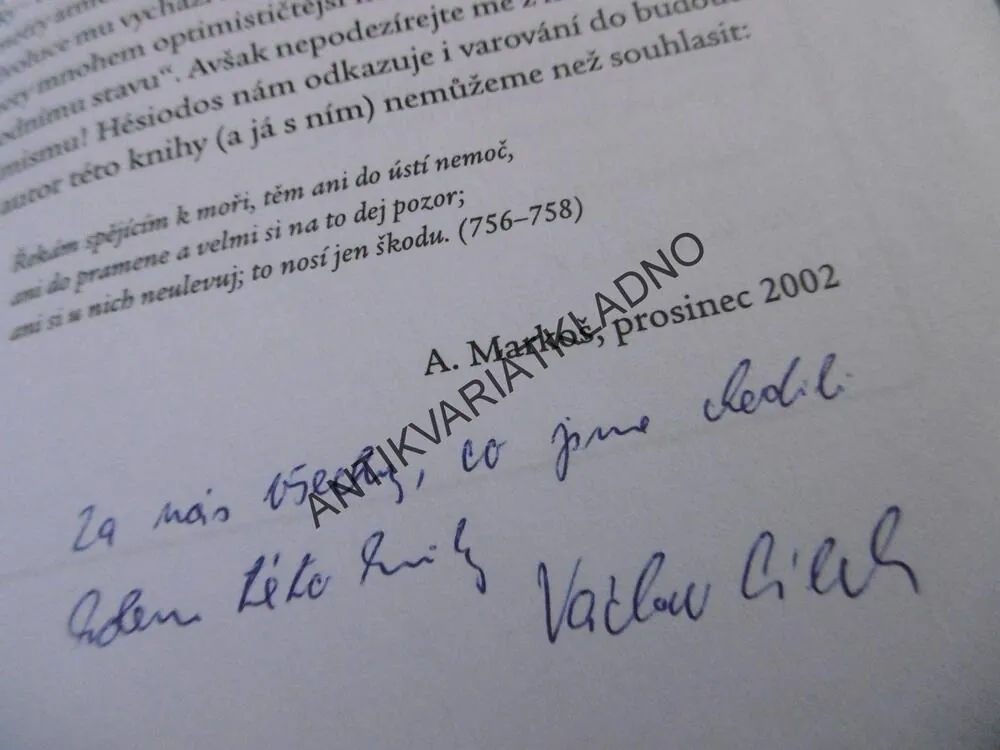 mnohem optimističtější
stavu“. Avšak nepodezírejte mě z
Hésiodos nám odkazuje i varování do
autor této knihy (a já s ním) nemůžeme než souhlasit:
Řekám spějícím k moři, těm ani do ústí nemoč,
ani do pramene a velmi si na to dej pozor;
ani si u nich neulevuj; to nosí jen škodu. (756–758)
A. Markoš, prosinec 2002
ANTIKVARIAT KLADNO
Za nás všechny, co jsme chodili
kolem této knihy Václav Cílek